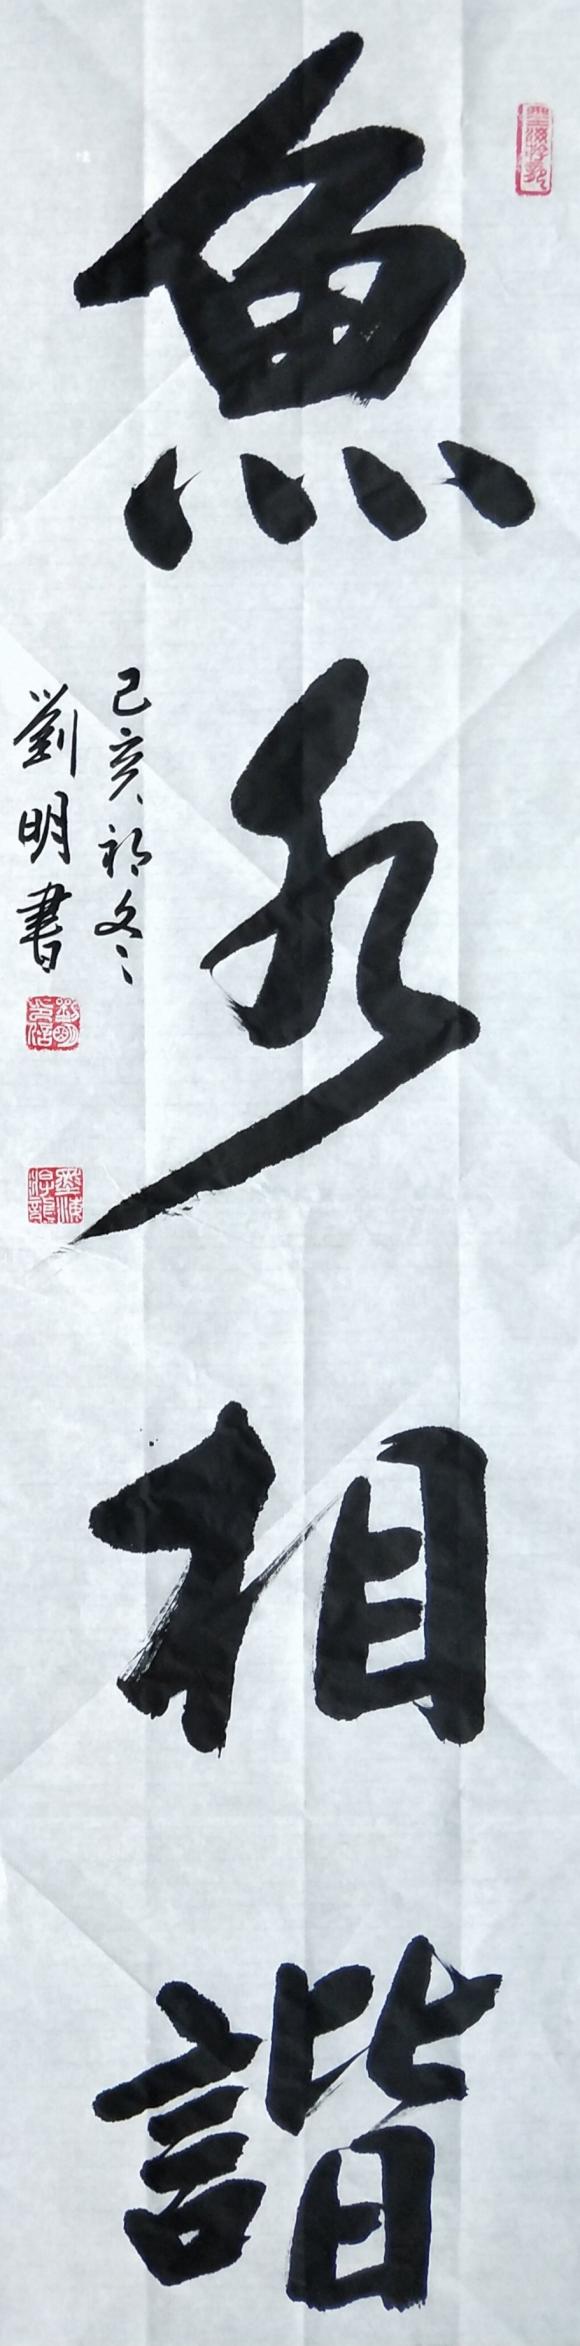 魚水相諧
己亥初冬
劉明書